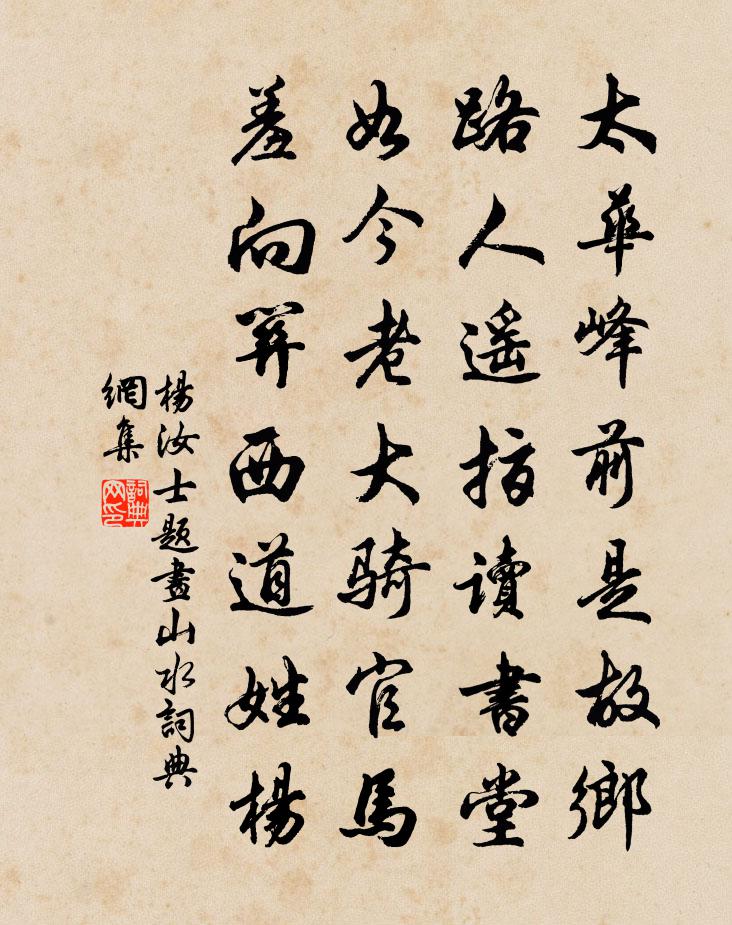 太華峰前是故鄉
路人遙指讀書堂
如今老大騎官馬
羞向關西道姓楊
楊汝士題畫山水詞典
網集
詞典
网印